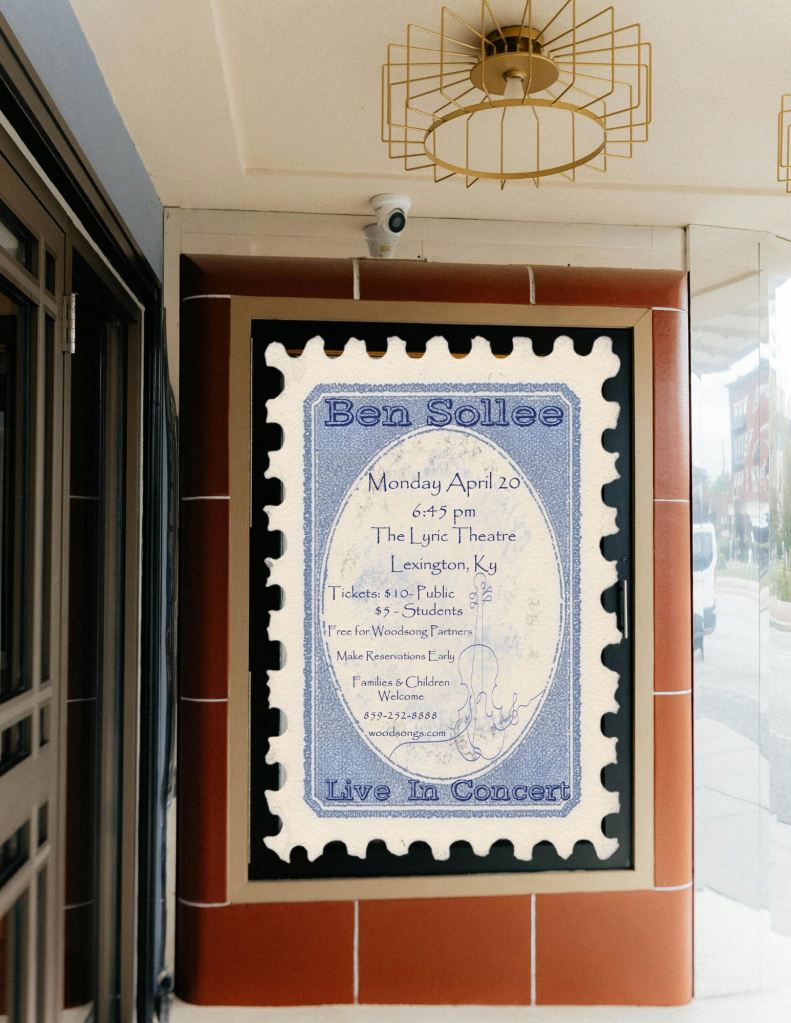 Ben Sollee
Monday April 20
6:45 pm
The Lyric Theatre
Lexington, Ky
Tickets: $10- Public
$5 - Students
Free for Woodsong Partners
Make Reservations Early
Families & Children
Welcome
859-252-8888
woodsongs.com
Live In Concert